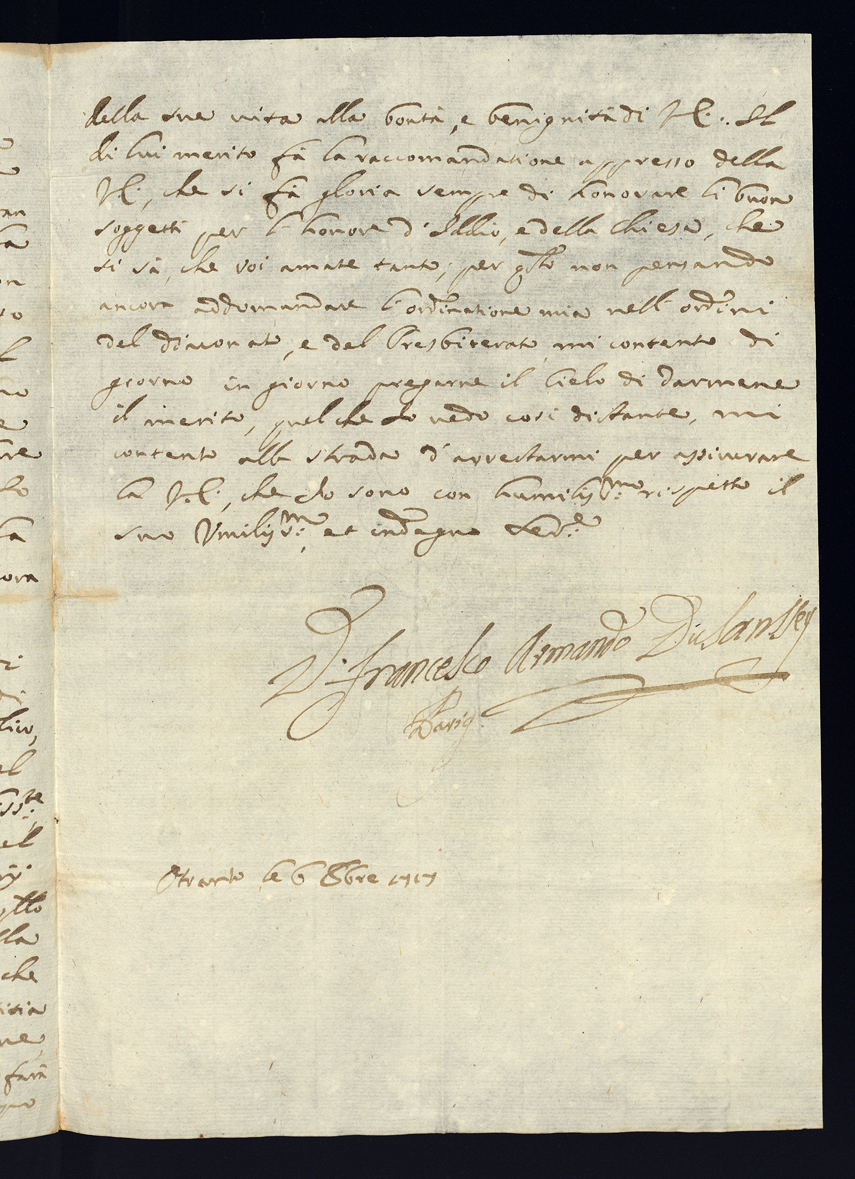 della sua vita alla bontà, e benignità di V.S. Il
di lui merito fà la raccomandatione appresso della
V.S., che si fà gloria sempre di honorare li buon
soggetti per l'honore d'Iddio, e della chiesa, che
si sà, che voi amate tanto; per q.sto non pensando
ancora addomandare l'ord.inatione mia nell'ordini
del diaconato, e del Presbiterato, mi contento di
giorno in giorno pregarne il Cielo di darmene
il merito, quel che Io vedo così distante, mi
contento alla strada d'arrestarmi per assicurare
la V.S., che Io sono con humiliss.mo rispetto il
suo Umiliss.mo, et indegno
D. Francesco Armando
Parig.
Otranto le 6 8bre 1717
ran
ro
no
re
lo
ora
lico,
el
iss.te
el
llo
lla
che
itia
ne
farà